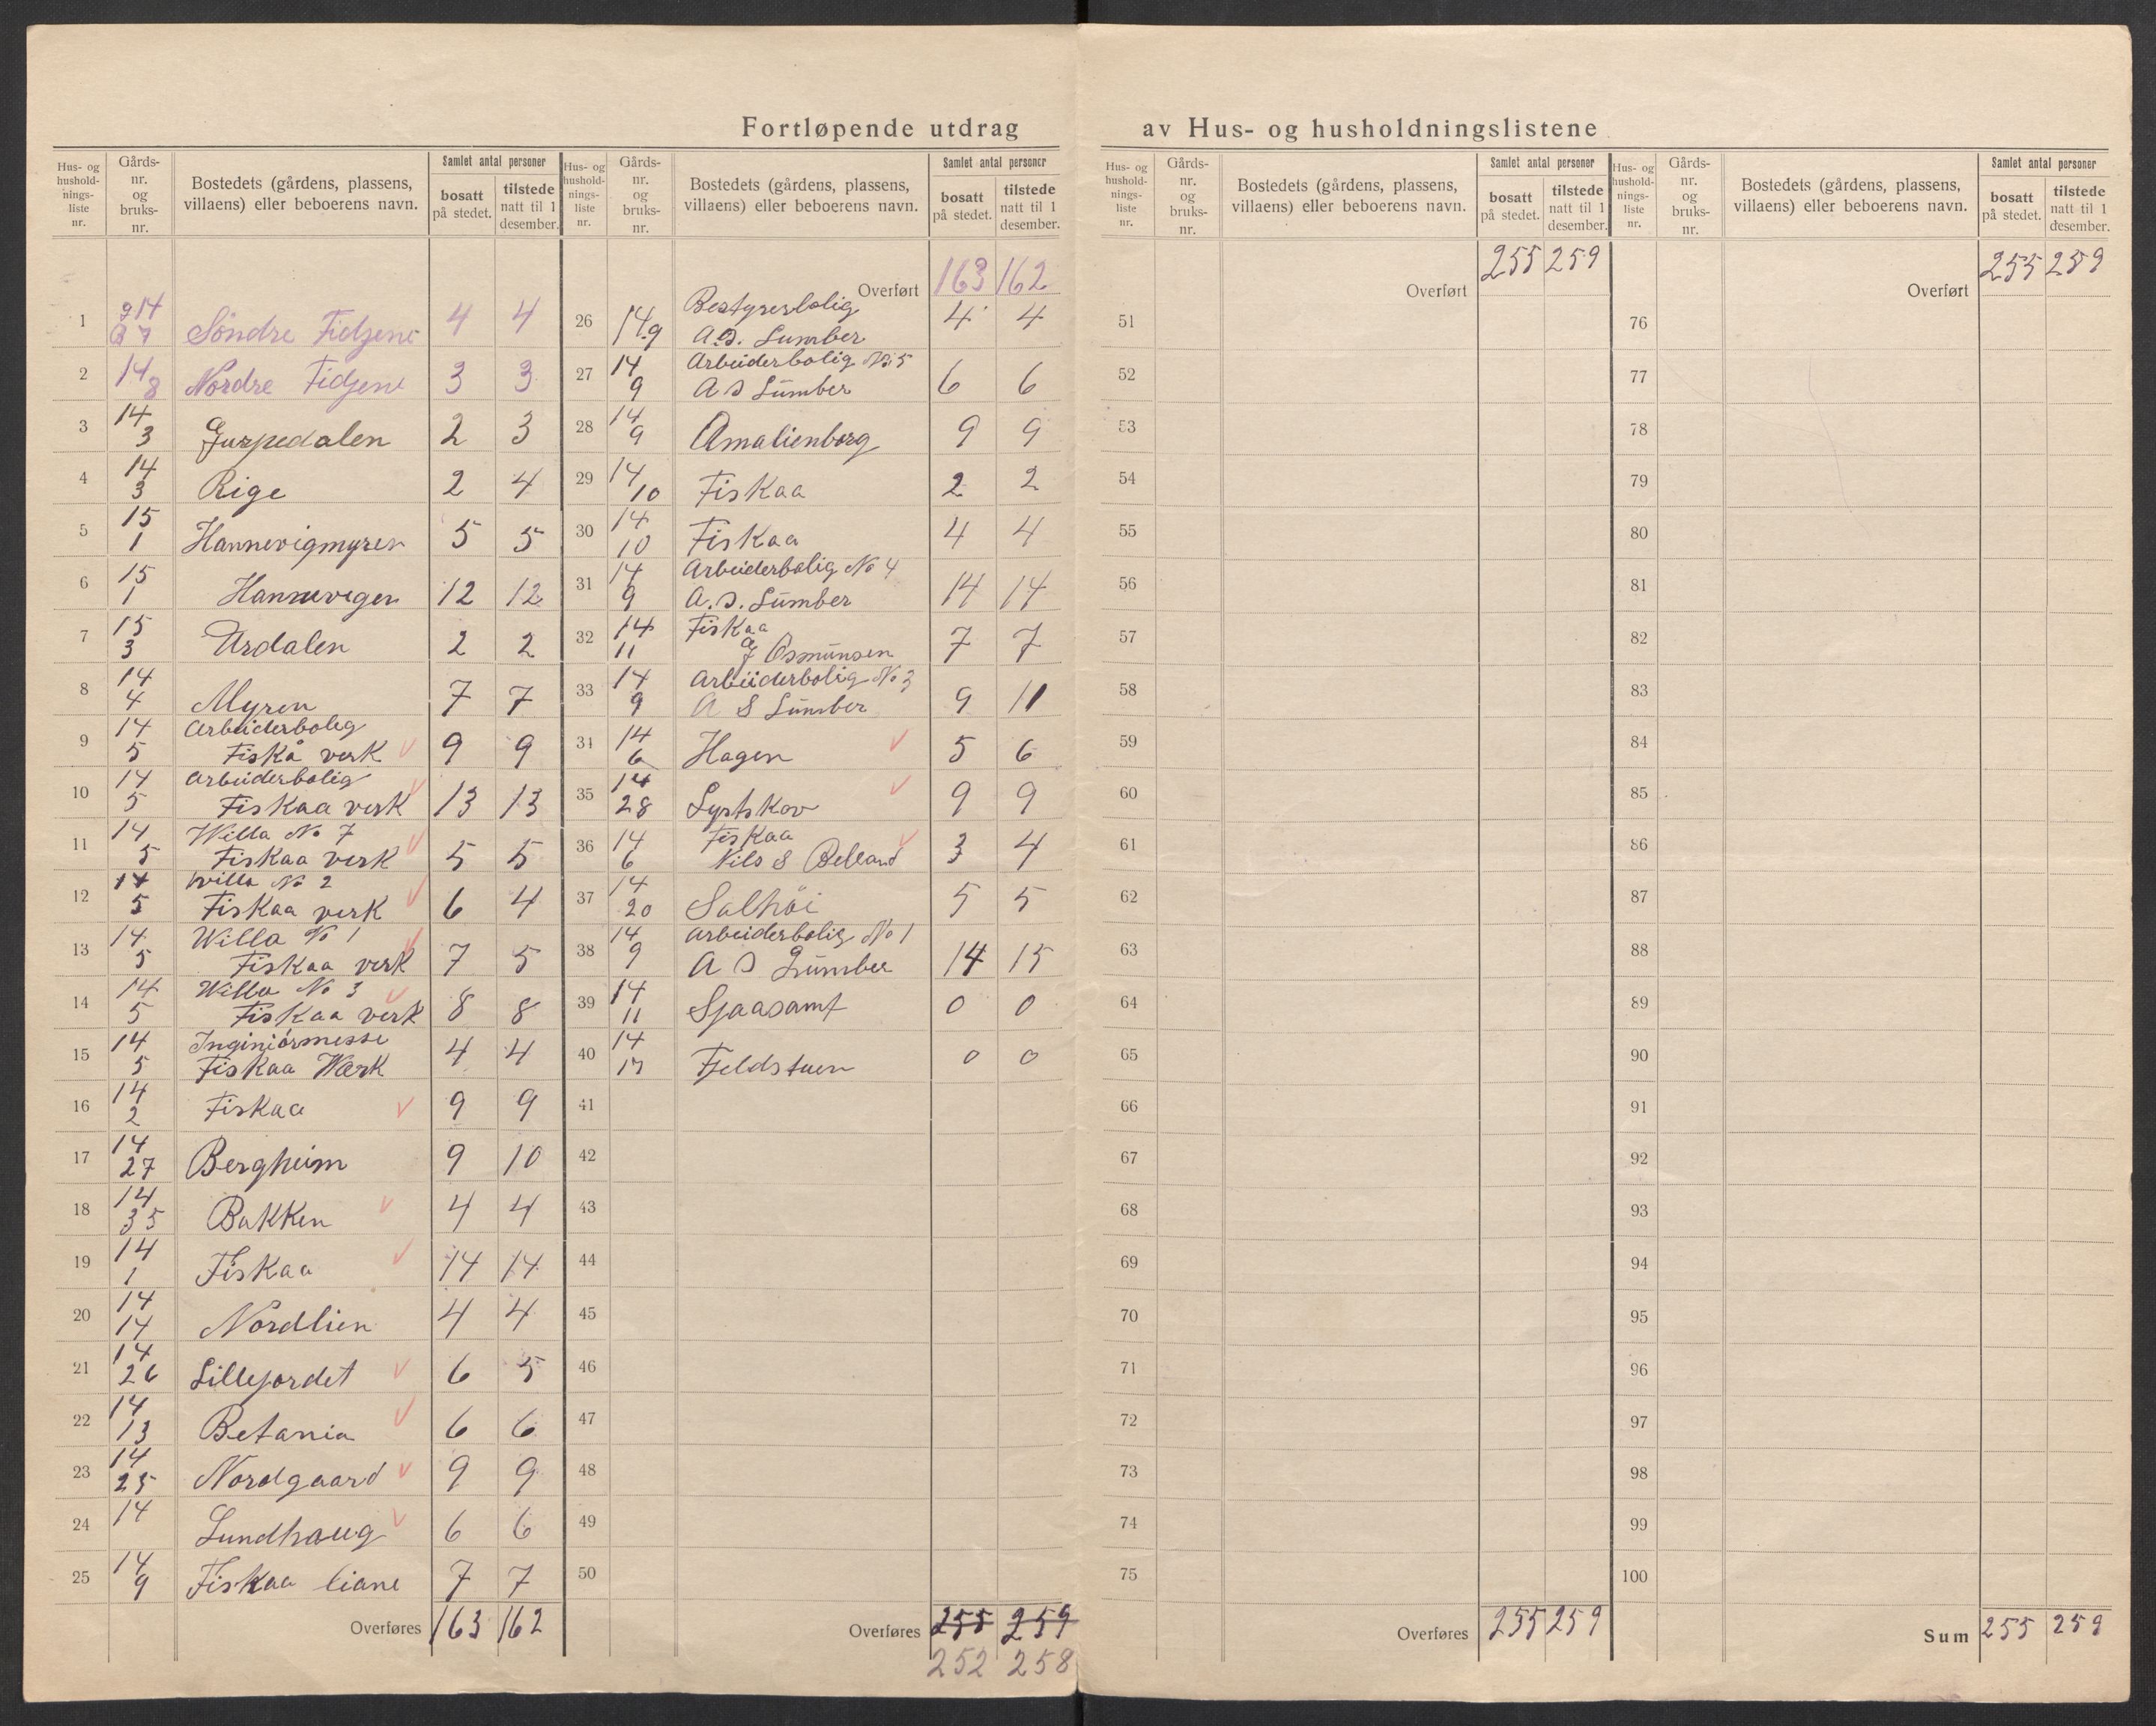 Fortløpende utdrag av Hus- og husholdningslistene
Hus- og husholdnings-liste nr. | Gårds-nr. og bruks-nr. | Bostedets (gårdens, plassens, villaens) eller beboerens navn. | Samlet antal personer: bosatt på stedet. | tilstede natt til 1 desember.
1 | g 14 B 7 | Søndre Fidjene | 4 | 4
2 | 14 8 | Nordre Fidjene | 3 | 3
3 | 14 3 | Gurpedalen | 2 | 3
4 | 14 3 | Rige | 2 | 4
5 | 15 1 | Hannevigmyren | 5 | 5
6 | 15 1 | Hannevigen | 12 | 12
7 | 15 3 | Urdalen | 2 | 2
8 | 14 4 | Myren | 7 | 7
9 | 14 5 | Arbeiderbolig Fiskå verk | 9 | 9
10 | 14 5 | Arbeiderbolig Fiskaa verk | 13 | 13
11 | 14 5 | Willa No 7 Fiskaa verk | 5 | 5
12 | 14 5 | Willa No 2 Fiskaa verk | 6 | 4
13 | 14 5 | Willa No 1 Fiskaa verk | 7 | 5
14 | 14 5 | Willa No 3 Fiskaa verk | 8 | 8
15 | 14 5 | Inginiørmesse Fiskaa Værk | 4 | 4
16 | 14 2 | Fiskaa | 9 | 9
17 | 14 27 | Bergheim | 9 | 10
18 | 14 35 | Bakken | 4 | 4
19 | 14 1 | Fiskaa | 14 | 14
20 | 14 14 | Nordlien | 4 | 4
21 | 14 26 | Lillejordet | 6 | 5
22 | 14 13 | Betania | 6 | 6
23 | 14 25 | Nordgaard | 9 | 9
24 | 14 | Lundhaug | 6 | 6
25 | 14 9 | Fiskaa liane | 7 | 7
Overføres 163 162
Hus- og husholdnings-liste nr. | Gårds-nr. og bruks-nr. | Bostedets (gårdens, plassens, villaens) eller beboerens navn. | Samlet antal personer: bosatt på stedet. | tilstede natt til 1 desember.
Overført 163 162
26 | 14 9 | Bestyrerbolig A.S. Lumber | 4 | 4
27 | 14 9 | Arbeiderbolig No 5 A S Lumber | 6 | 6
28 | 14 9 | Amalienborg | 9 | 9
29 | 14 10 | Fiskaa | 2 | 2
30 | 14 10 | Fiskaa | 4 | 4
31 | 14 9 | Arbeiderbolig No 4 A.S. Lumber | 14 | 14
32 | 14 11 | Fiskaa G Osmunsen | 7 | 7
33 | 14 9 | Arbeiderbolig No 3 A S Lumber | 9 | 11
34 | 14 6 | Hagen | 5 | 6
35 | 14 28 | Lystskov | 9 | 9
36 | 14 6 | Fiskaa Nils S Belland | 3 | 4
37 | 14 20 | Solhøi | 5 | 5
38 | 14 9 | Arbeiderbolig No 1 A S Lumber | 14 | 15
39 | 14 11 | Sjaasamt | 0 | 0
40 | 14 17 | Fjeldstuen | 0 | 0
41
42
43
44
45
46
47
48
49
50
Overføres 255 259
252 258
Hus- og husholdnings-liste nr. | Gårds-nr. og bruks-nr. | Bostedets (gårdens, plassens, villaens) eller beboerens navn. | Samlet antal personer: bosatt på stedet. | tilstede natt til 1 desember.
Overført 255 259
51
52
53
54
55
56
57
58
59
60
61
62
63
64
65
66
67
68
69
70
71
72
73
74
75
Overføres 255 259
Hus- og husholdnings-liste nr. | Gårds-nr. og bruks-nr. | Bostedets (gårdens, plassens, villaens) eller beboerens navn. | Samlet antal personer: bosatt på stedet. | tilstede natt til 1 desember.
Overført 255 259
76
77
78
79
80
81
82
83
84
85
86
87
88
89
90
91
92
93
94
95
96
97
98
99
100
Sum 255 259